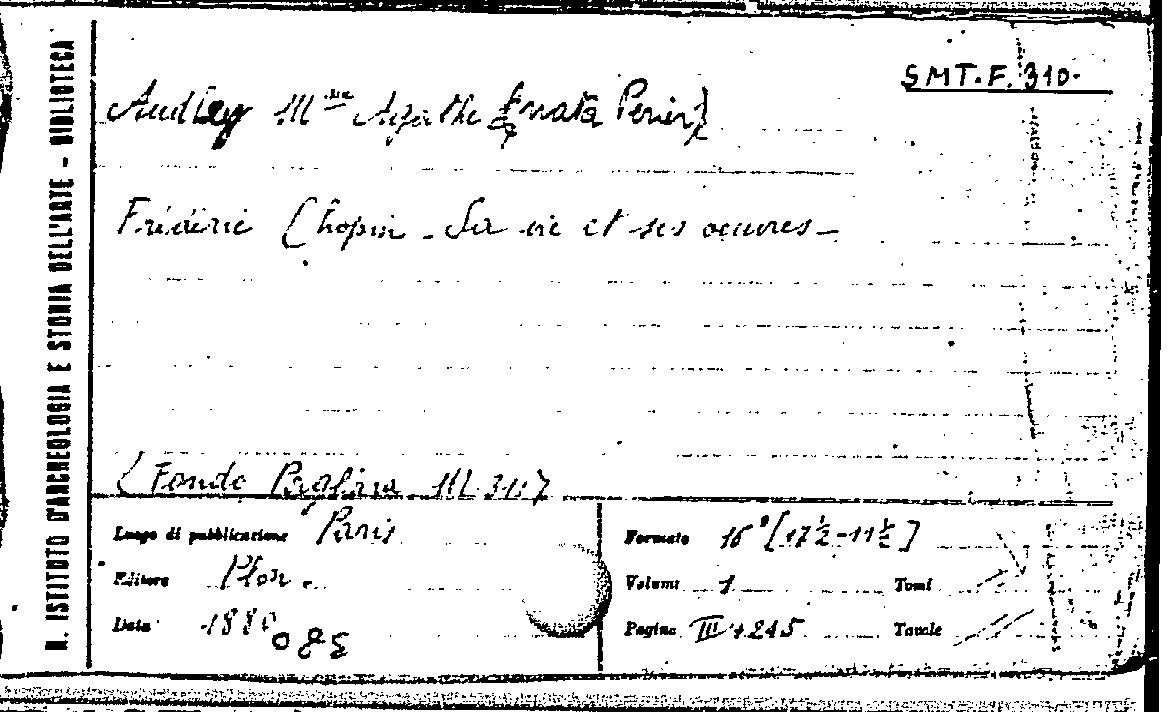 R. ISTITUTO D'ARCHEOLOGIA E STORIA DELL'ARTE - BIBLIOTECA
SMT.F. 310.
Audley Mme Agathe (nata Perier)
Frédéric Chopin - Sa vie et ses oeuvres -
(Fondo Pagliara III
Luogo di pubblicazione Paris
Formato 16° [17 ½ - 11 ½]
Editore Plon.
Volumi 1
Tomi
Data 1880
Pagine III + 245
Tavole
085